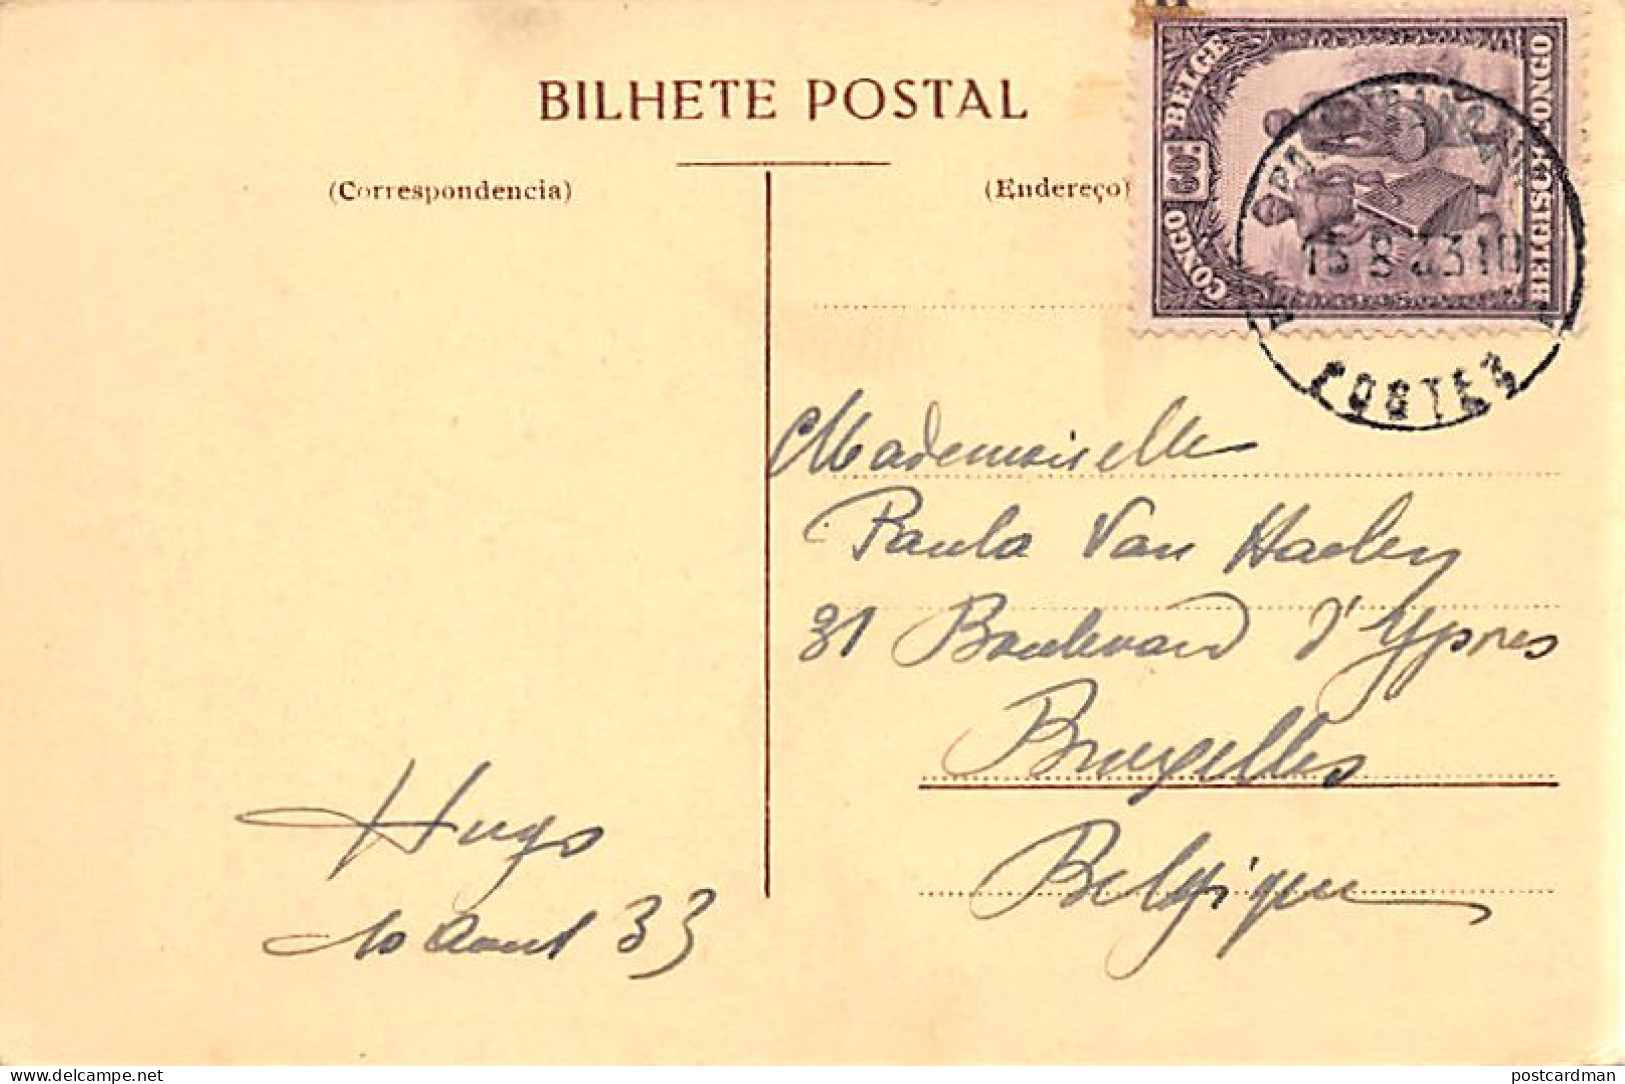 BILHETE POSTAL
(Correspondencia)
(Endereço)
CONGO 60c. BELGE
BELGISCH CONGO
15 8 33 10
POSTES
Mademoiselle
Paula Van
31 Boulevard d'Ypres
Bruxelles
Belgique
Hugo
10 Aout 33
delcampe.net
postcardman